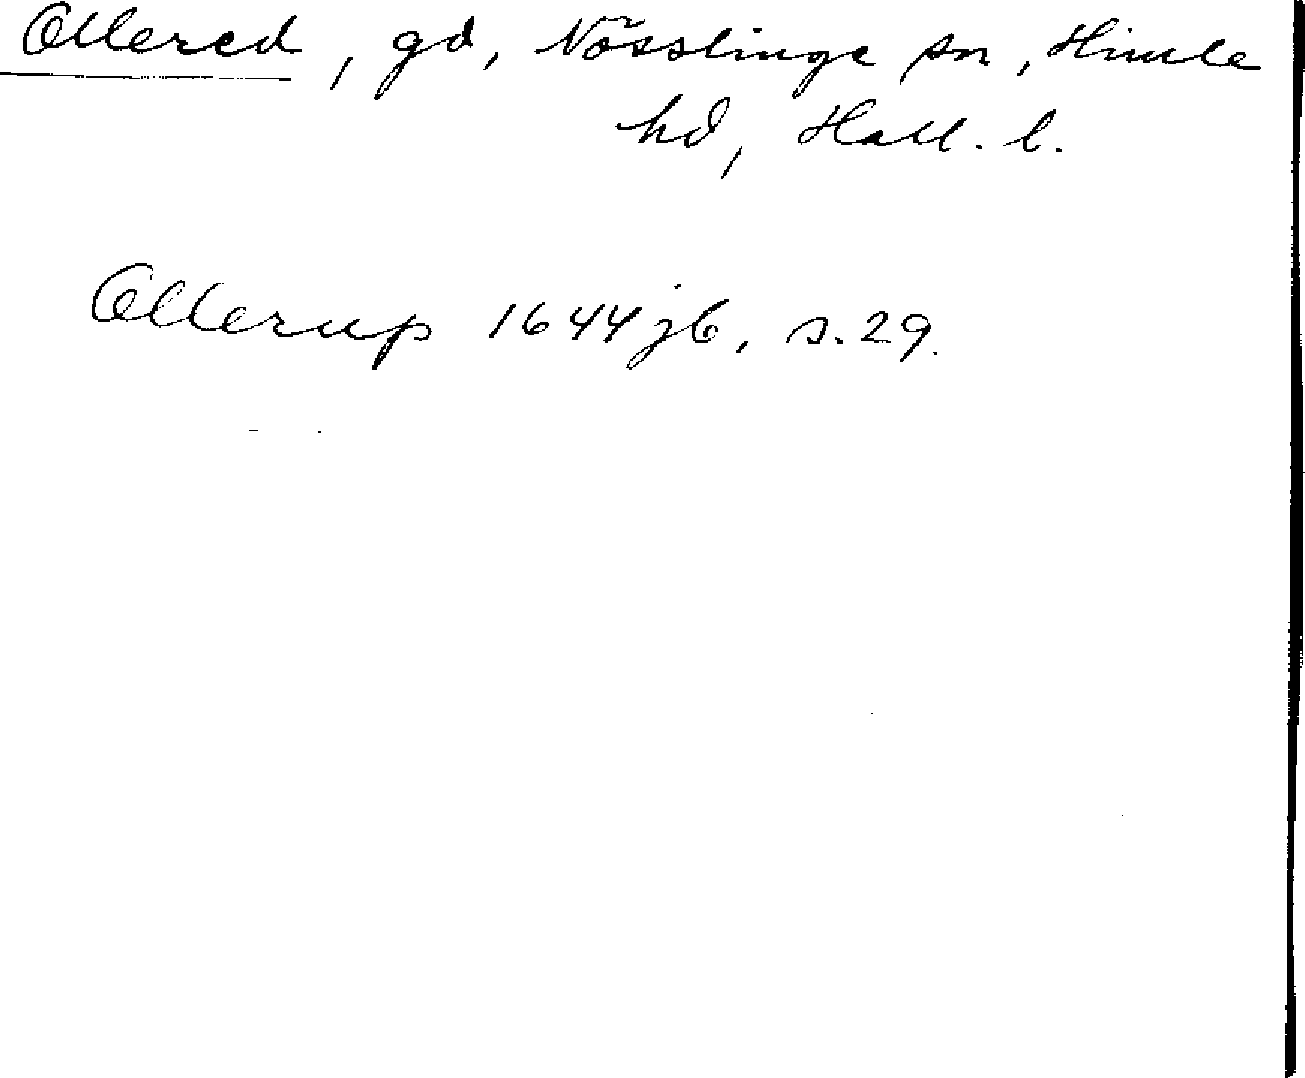 Ollered, gd, Nösslinge sn, Himle
hd, Hall. l.
Ollerup 1644 jb, s. 29.